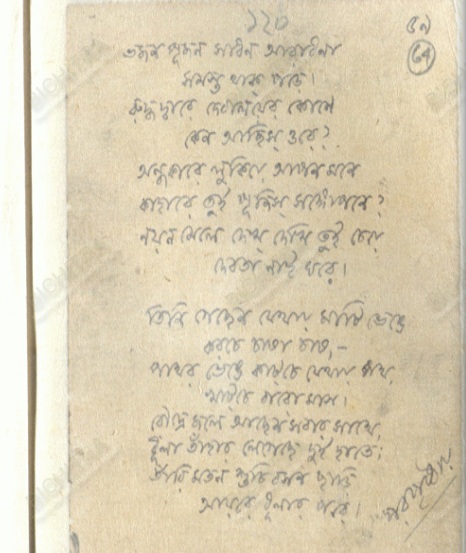 ১২০
৫৯
৬৭
ভজন পূজন সাধন আরাধনা
সমস্ত থাক্ পড়ে।
রুদ্ধ দ্বারে দেবালয়ের কোণে
কেন আছিস্ ওরে?
অন্ধকারে লুকিয়ে আপন মনে
কাহারে তুই পূজিস্ সঙ্গোপনে?
নয়ন মেলে দেখ্ দেখি তুই চেয়ে
দেবতা নাই ঘরে।
তিনি গেছেন যেথায় মাটি ভেঙে
করচে চাষা চাষ,—
পাথর ভেঙে কাটচে যেথায় পথ,
খাটচে বারো মাস।
রৌদ্রে জলে আছেন সবার সাথে,
ধূলা তাঁহার লেগেছে দুই হাতে;
তাঁরি মতন শুচি বসন ছাড়ি
আয়রে ধূলার পরে।